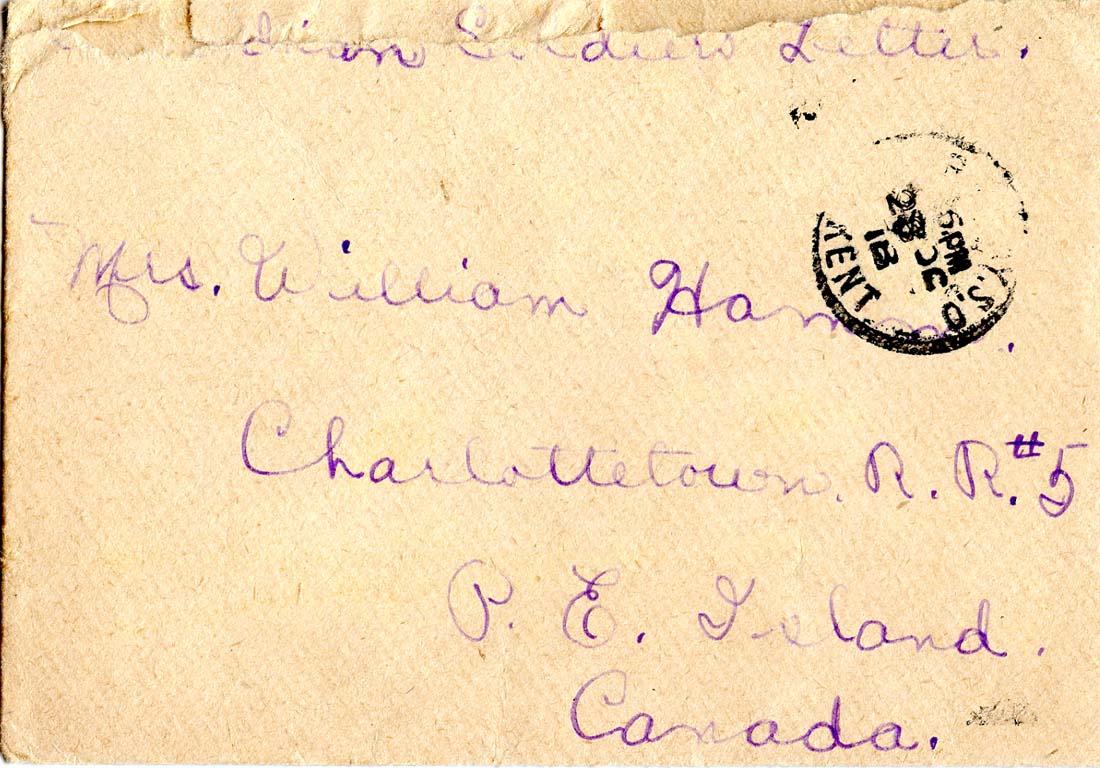 Soldiers Letter.
Mrs. William Hamm.
Charlottetown. R. R. #5
P. E. Island.
Canada.
S.O.
6 PM
28 DC
18
KENT